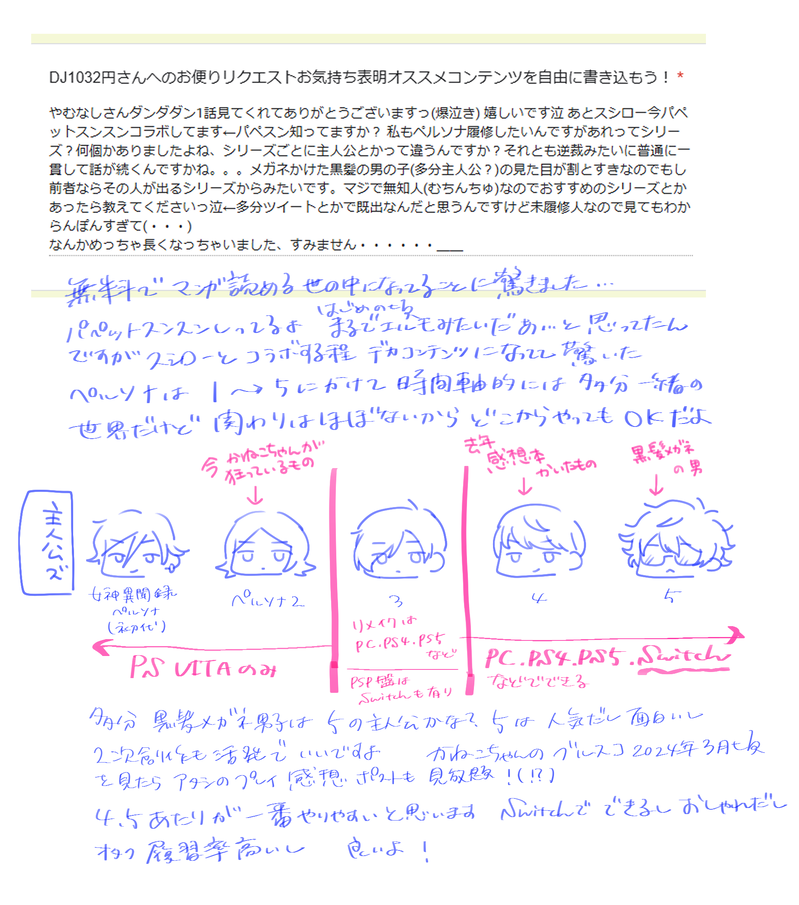 DJ1032円さんへのお便りリクエストお気持ち表明オススメコンテンツを自由に書き込もう！ *
やむなしさんダンダダン1話見てくれてありがとうございますっ(爆泣き) 嬉しいです泣 あとスシロー今パペ
ットスンスンコラボしてます←パペスン知ってますか？ 私もペルソナ履修したいんですがあれってシリー
ズ？何個かありましたよね、シリーズごとに主人公とかって違うんですか？それとも逆裁みたいに普通に一
貫して話が続くんですかね。。。メガネかけた黒髪の男の子(多分主人公？)の見た目が割とすきなのでもし
前者ならその人が出るシリーズからみたいです。マジで無知人(むちんちゅ)なのでおすすめのシリーズとか
あったら教えてくださいっ泣←多分ツイートとかで既出なんだと思うんですけど未履修人なので見てもわか
らんぽんすぎて(・・・)
なんかめっちゃ長くなっちゃいました、すみません・・・・・・____
無料でマンガ読める世の中になってることに驚きました…
はじめの頃
パペットスンスンしってるよ まるでエルモみたいだぁ…と思ってたん
ですがスシローとコラボする程デカコンテンツになってて驚いた
ペルソナは 1〜5にかけて時間軸的には多分一緒の
世界だけど 関わりはほぼないからどこからやってもOKだよ
今 かねこちゃんが
狂っているもの
去年
感想本
かいたもの
黒髪メガネ
の男
主人公ズ
女神異聞録
ペルソナ
(初代)
ペルソナ2
3
4
5
リメイクは
PC.PS4.PS5
など
PSP盤は
Switchも有り
PS VITAのみ
PC.PS4.PS5.Switch
などでできる
多分 黒髪メガネ男子は5の主人公かな？5は人気だし面白いし
2次創作も活発でいいですよ かねこちゃんのブルスコ2024年3月頃
を見たらアタシのプレイ感想ポストも見放題！(!?)
4.5あたりが一番やりやすいと思います Switchでできるしおしゃれだし
オタク履習率高いし 良いよ！